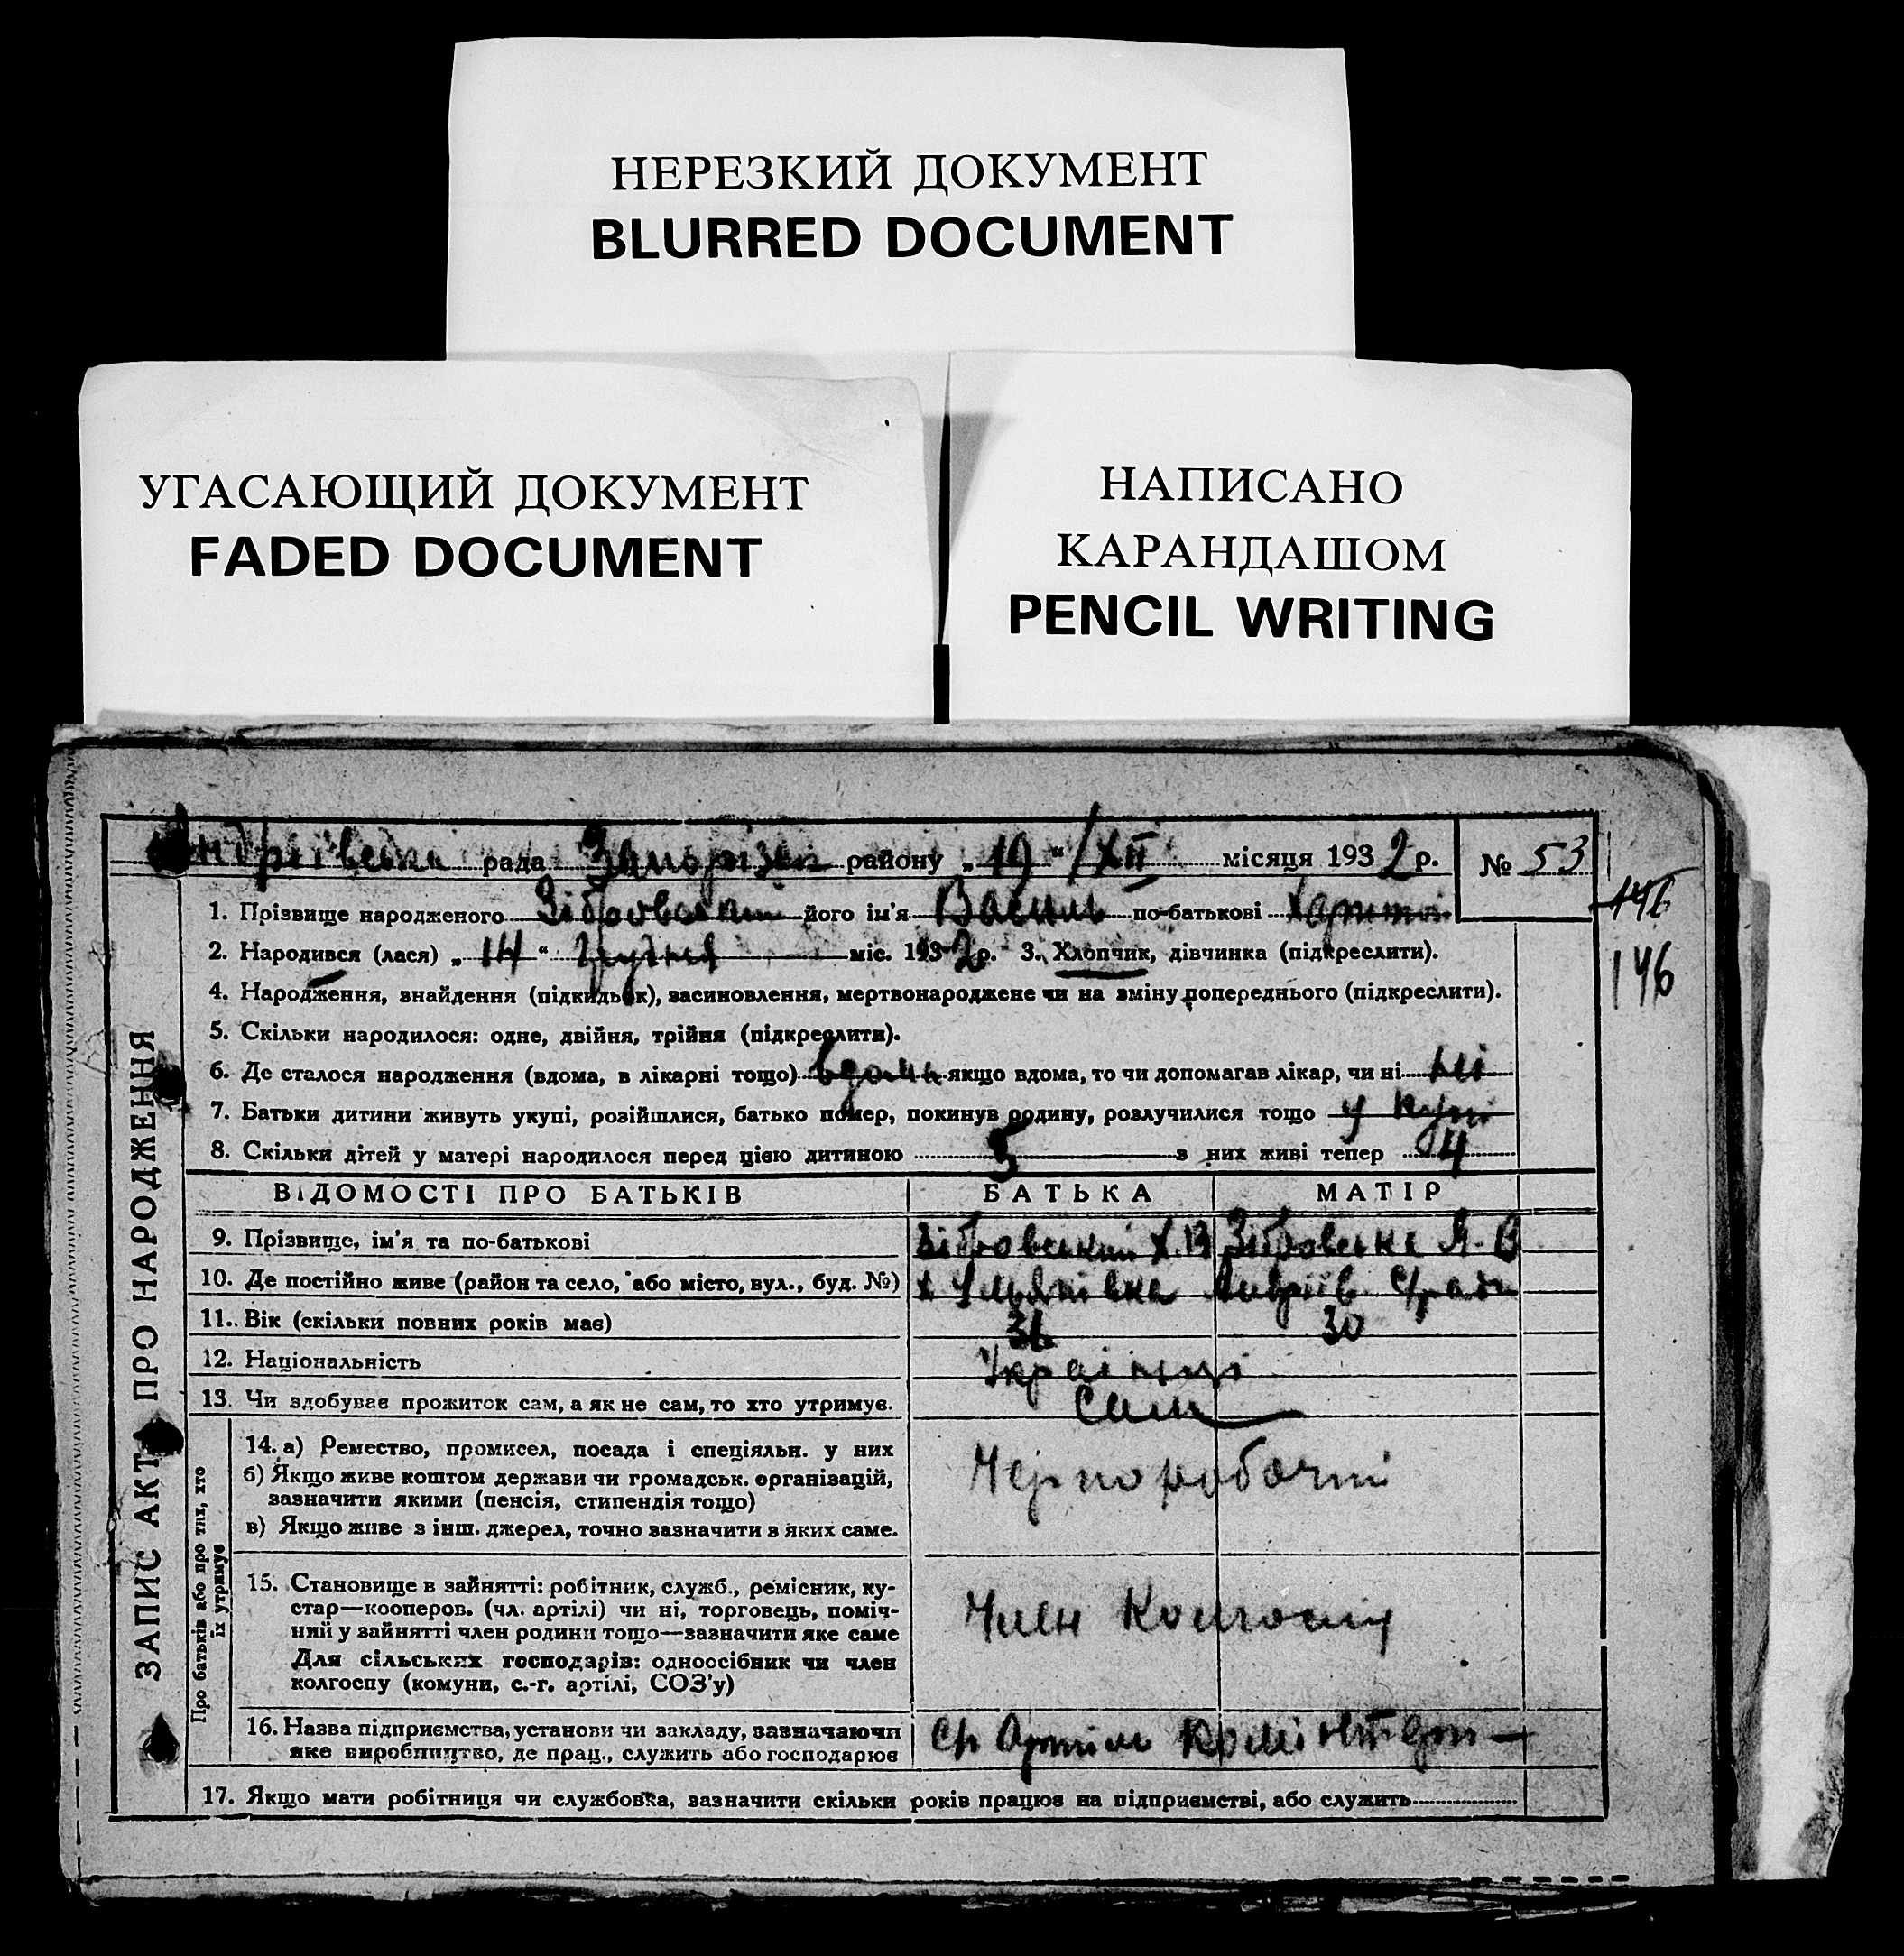 НЕРЕЗКИЙ ДОКУМЕНТ
BLURRED DOCUMENT
УГАСАЮЩИЙ ДОКУМЕНТ
FADED DOCUMENT
НАПИСАНО
КАРАНДАШОМ
PENCIL WRITING
рада район у „19“ /XII місяця 1932 р. № 53
146
146
ЗАПИС АКТ ПРО НАРОДЖЕННЯ
1. Прізвище народженого Зібровський його ім'я Василь по-батькові
2. Народився (лася) „14“ Грудня міс. 1932 р. 3. Хлопчик, дівчинка (підкреслити).
4. Народження, знайдення (підкидьок), засиновлення, мертвонароджене чи на зміну попереднього (підкреслити).
5. Скільки народилося: одне, двійня, трійня (підкреслити).
6. Де сталося народження (вдома, в лікарні тощо) вдома якщо вдома, то чи допомагав лікар, чи ні ні
7. Батьки дитини живуть укупі, розійшлися, батько помер, покинув родину, розлучилися тощо у купі
8. Скільки дітей у матері народилося перед цією дитиною 5 з них живі тепер 4
ВІДОМОСТІ ПРО БАТЬКІВ БАТЬКА МАТІР
9. Прізвище, ім'я та по-батькові Зібровський Х. В Зібровська Я. О
10. Де постійно живе (район та село, або місто, вул., буд. №)
11. Вік (скільки повних років має) 36 30
12. Національність Українці
13. Чи здобуває прожиток сам, а як не сам, то хто утримує. Сам
Про батьків або про тих, хто
їх утримує
14. а) Ремество, промисел, посада і спеціяльн. у них
б) Якщо живе коштом держави чи громадськ. організацій,
зазначити якими (пенсія, стипендія тощо)
в) Якщо живе з інш. джерел, точно зазначити з яких саме.
Чернoробочі
15. Становище в зайнятті: робітник, служб., ремісник, ку-
стар—кооперов. (чл. артілі) чи ні, торговець, поміч-
ний у зайнятті член родини тощо—зазначити яке саме
Для сільських господарів: одноосібник чи член
колгоспу (комуни, с.-г. артілі, СОЗ'у)
Член Колгоспу
16. Назва підприємства, установи чи закладу, зазначаючи
яке виробництво, де прац., служить або господарює
Артіль
17. Якщо мати робітниця чи службовка, зазначити скільки років працює на підприємстві, або служить